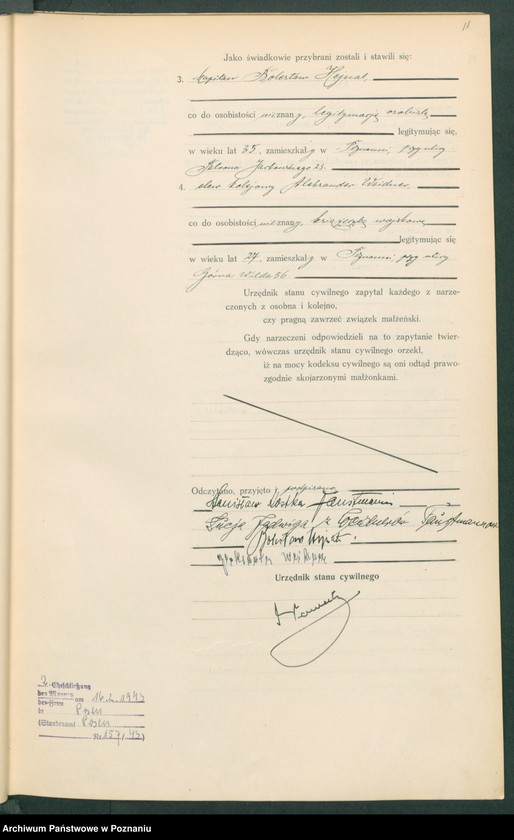 11
Jako świadkowie przybrani zostali i stawili się:
3. kapitan Bolesław Hojnat,
co do osobistości nieznany, legitymacją osobistą
legitymując się,
w wieku lat 35, zamieszkały w Poznaniu, przy ulicy
23.
4. Aleksander Weidner,
co do osobistości nieznany, książeczką wojskową
legitymując się
w wieku lat 27, zamieszkały w Poznaniu, przy ulicy
Górna Wilda 86.
Urzędnik stanu cywilnego zapytał każdego z narze-
czonych z osobna i kolejno,
czy pragną zawrzeć związek małżeński.
Gdy narzeczeni odpowiedzieli na to zapytanie twier-
dząco, wówczas urzędnik stanu cywilnego orzekł,
iż na mocy kodeksu cywilnego są oni odtąd prawo-
zgodnie skojarzonymi małżonkami.
Odczytano, przyjęto i podpisano
Stanisław Kostka
Łucja Jadwiga z
Bolesław
Urzędnik stanu cywilnego
2. Eheschließung
des Mannes am 16.2.1943
in Posen
(Standesamt Posen
Nr. 157/43)
Archiwum Państwowe w Poznaniu